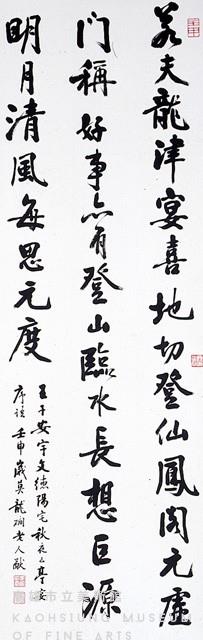 若夫龍津宴喜地切登仙鳳閣元虛
门稱好事亦有登山臨水長想巨源
明月清風每思元度
王子安宇文德陽宅秋夜山亭宴
序語壬申歲莫龍磵老人猷
高雄市立美術館
KAOHSIUNG MUSEUM
OF FINE ARTS